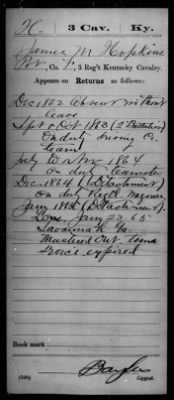 H. 3 Cav. Ky.
James M Hopkins
Pvt, Co. , 3 Reg't Kentucky Cavalry.
Appears on Returns as follows:
Dec 1862 Absent without
leave
Sept & Oct 1863 (2 Battalion)
On duty driving Co
team
July to Nov 1864
on duty teamster
Dec. 1864 (Detachment)
on duty Regtl wagoner
Jany 1865 (Detachment).
Loss. Jany 23 65
Savannah Ga.
Mustered Out term
service expired
Book mark:
Copyist.